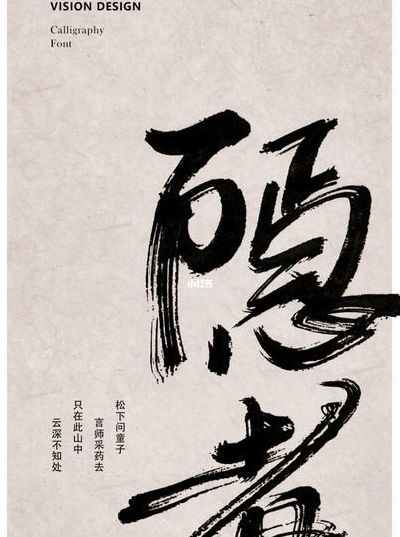 VISION DESIGN
Calligraphy
Font
隐者
小红书
松下问童子
言师采药去
只在此山中
云深不知处